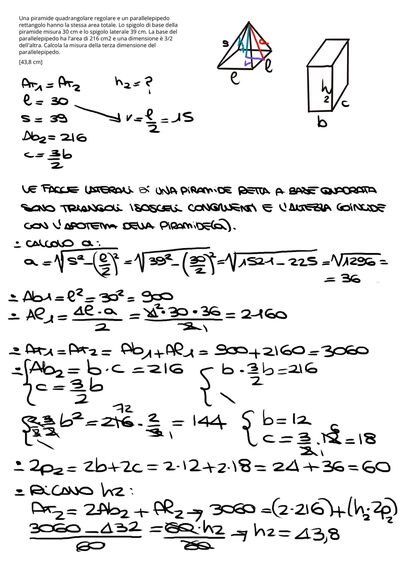 Una piramide quadrangolare regolare e un parallelepipedo
rettangolo hanno la stessa area totale. Lo spigolo di base della
piramide misura 30 cm e lo spigolo laterale 39 cm. La base del
parallelepipedo ha l'area di 216 cm2 e una dimensione è 3/2
dell'altra. Calcola la misura della terza dimensione del
parallelepipedo.
[43,8 cm]
s a l l
h2 c b
AT1 = AT2 h2 = ?
l = 30
s = 39 → r = l/2 = 15
Ab2 = 216
c = 3/2 b
LE FACCE LATERALI DI UNA PIRAMIDE RETTA A BASE QUADRATA
SONO TRIANGOLI ISOSCELI CONGRUENTI E L'ALTEZZA COINCIDE
CON L'APOTEMA DELLA PIRAMIDE(a).
- CALCOLO a:
a = √(s² - (l/2)²) = √(39² - (30/2)²) = √(1521 - 225) = √1296 =
= 36
- Ab1 = l² = 30² = 900
- Al1 = 4l · a / 2 = 4² · 30 · 36 / 2 1 = 2160
- AT1 = AT2 = Ab1 + Al1 = 900 + 2160 = 3060
- { Ab2 = b · c = 216 { b · 3/2 b = 216
{ c = 3/2 b { \
{ 2/3 · 3/2 b² = 216 72 · 2/3 1 = 144 { b = 12
{ \ { c = 3/2 · 12 6 = 18
- 2p2 = 2b + 2c = 2 · 12 + 2 · 18 = 24 + 36 = 60
- RICAVO h2:
AT2 = 2Ab2 + Al2 → 3060 = (2 · 216) + (h2 · 2p2)
3060 - 432 / 60 = 60 · h2 / 60 → h2 = 43,8